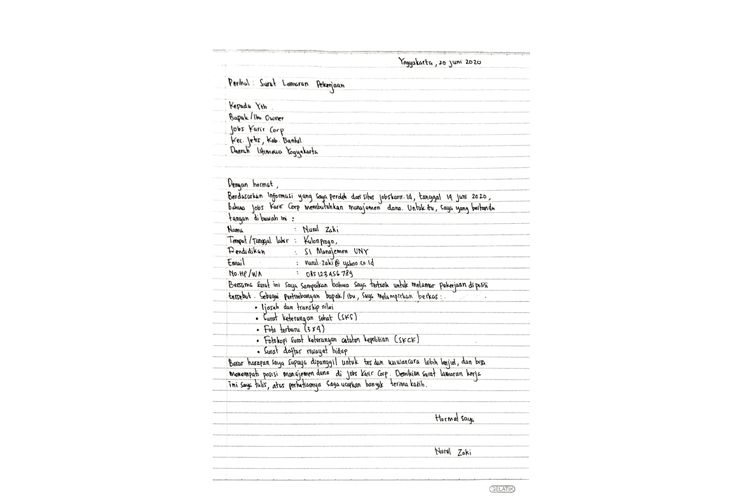 Yogyakarta, 20 Juni 2020
Perihal : Surat Lamaran Pekerjaan
Kepada Yth
Bapak/Ibu Owner
Jobs Karir Corp
Kec. Jetis, Kab. Bantul
Daerah Istimewa Yogyakarta
Dengan hormat,
Berdasarkan Informasi yang saya peroleh dari situs jobskarir.id, tanggal 19 juni 2020,
bahwa Jobs Karir Corp membutuhkan manajemen dana. Untuk itu, saya yang bertanda
tangan di bawah ini :
Nama : Nurul Zaki
Tempat/Tanggal lahir : Kulonprogo,
Pendidikan : S1 Manajemen UNY
Email : nurul.zaki@yahoo.co.id
No.HP/WA : 085123456789
Bersama surat ini saya sampaikan bahwa saya tertarik untuk melamar pekerjaan diposisi
tersebut. Sebagai pertimbangan bapak/ibu, saya melampirkan berkas :
• Ijasah dan transkip nilai
• Surat keterangan sehat (SKS)
• Foto terbaru (3x4)
• Fotokopi surat keterangan catatan kepolisian (SKCK)
• Surat daftar riwayat hidup
Besar harapan saya supaya dipanggil untuk tes dan wawancara lebih lanjut, dan bisa
menempati posisi manajemen dana di Jobs Karir Corp. Demikian surat lamaran kerja
ini saya tulis, atas perhatiannya saya ucapkan banyak terima kasih.
Hormat saya,
Nurul Zaki
GELATIK